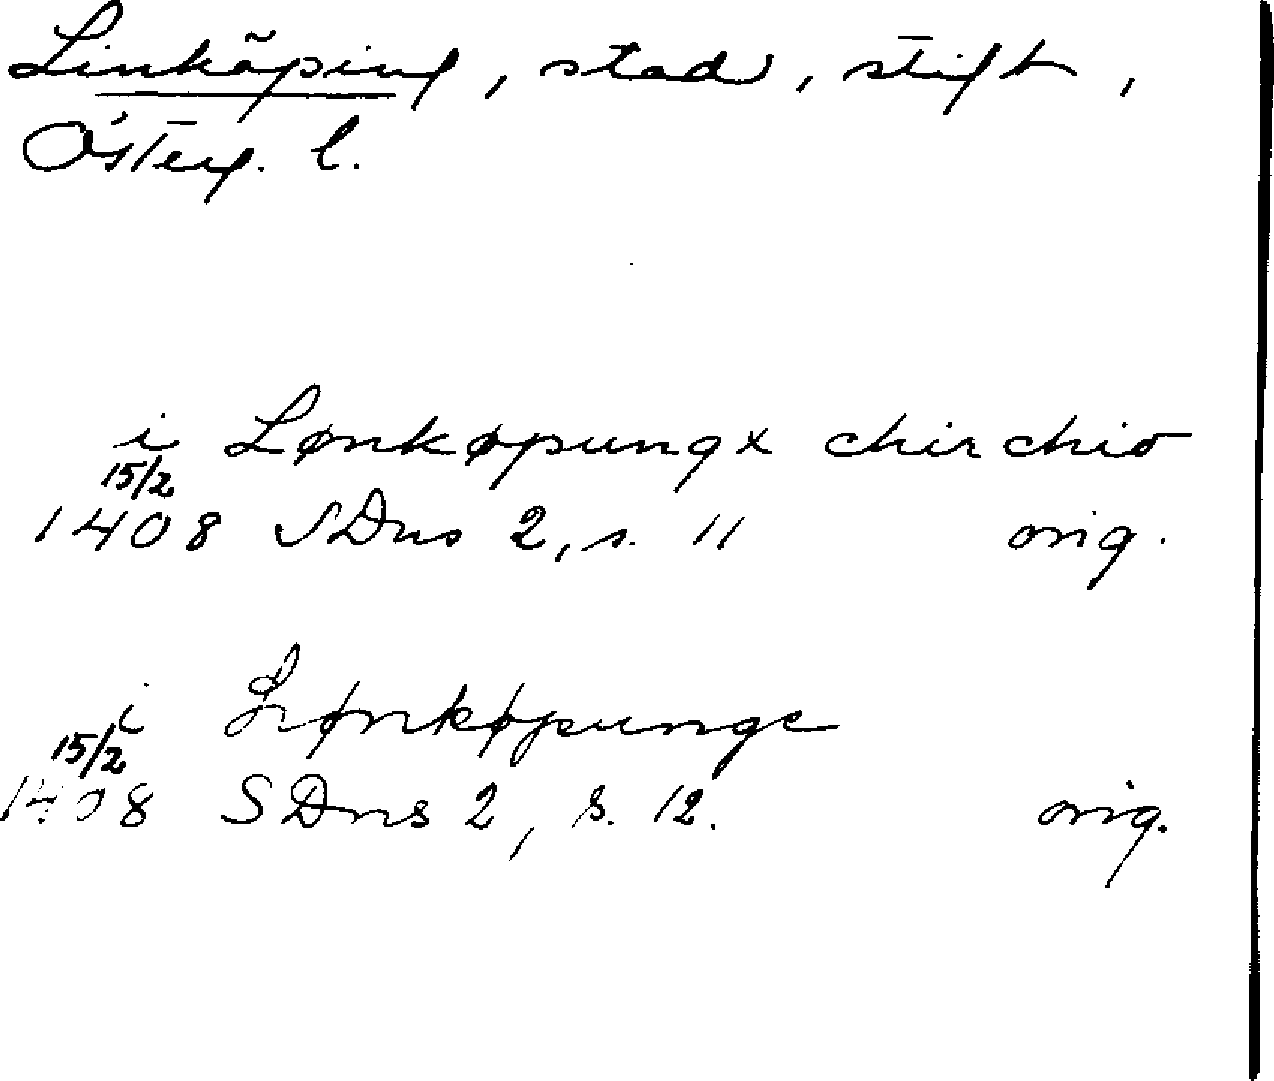 Linköping, stad, stift,
Österg. l.
i Lønkøpungx chirchio
15/2
1408 SDns 2, s. 11 orig.
i Lønkøpunge
15/2
1408 SDns 2, s. 12. orig.